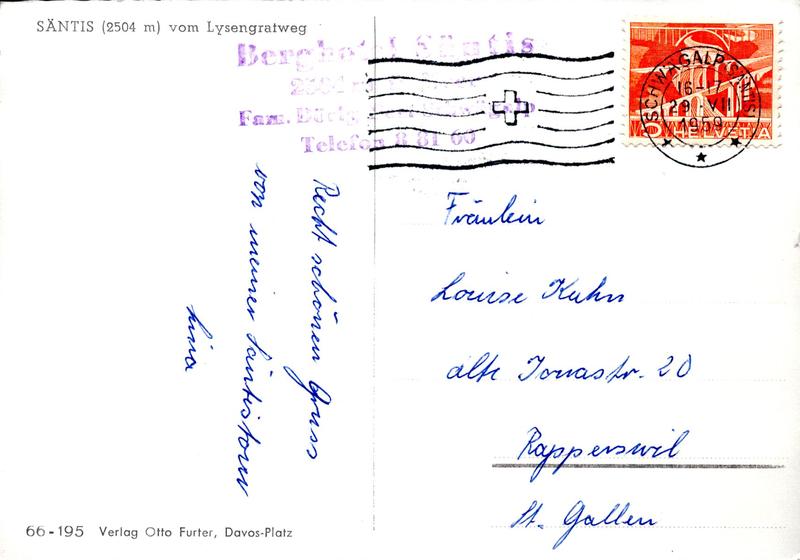 SÄNTIS (2504 m) vom Lysengratweg
Berghotel Säntis
2504 m
Fam.
Telefon 8 81 60
SCHWÄGALP-SÄNTIS
16-17
29. VII
1959
5 HELVETIA
Recht schönen Gruss
von meiner Säntistour
Lina
Fräulein
Louise Kuhn
alte Jonastr. 20
Rapperswil
St. Gallen
66-195 Verlag Otto Furter, Davos-Platz